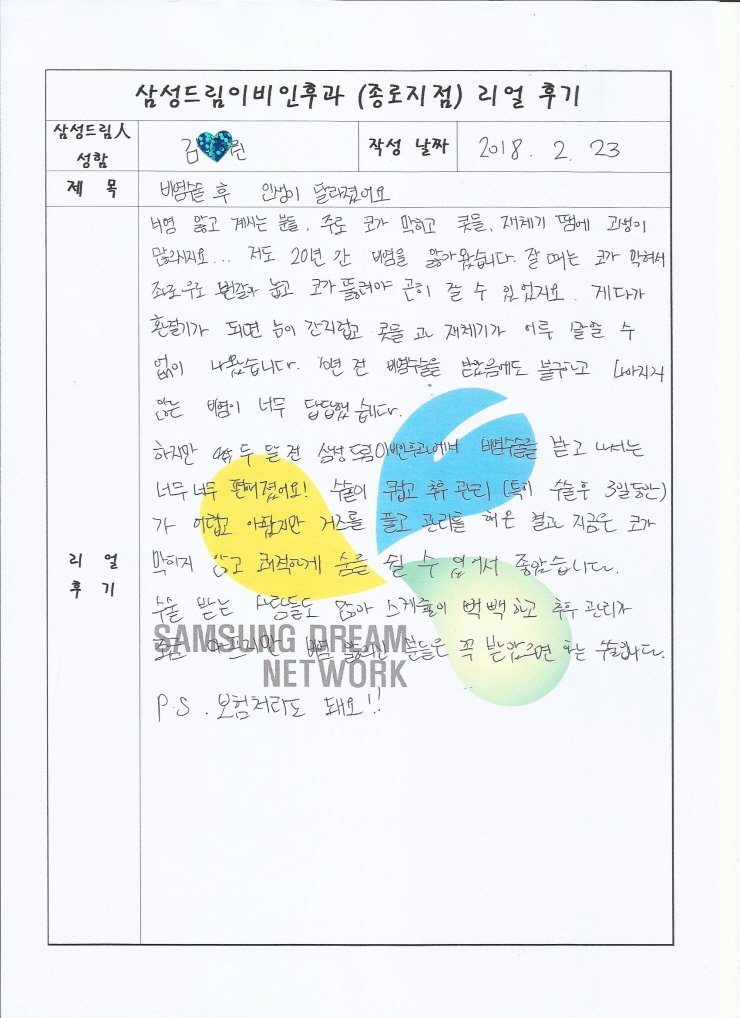 삼성드림이비인후과 (종로지점) 리얼 후기
삼성드림人 성함
김 원
작성 날짜
2018. 2. 23
제 목
비염수술 후 인생이 달라졌어요
리 얼 후 기
비염 앓고 계시는 분들, 주로 코가 막히고 콧물, 재채기 땜에 고생이
많으시지요... 저도 20년 간 비염을 앓아왔습니다. 잘 때는 코가 막혀서
좌로 우로 번갈아 눕고 코가 뚫려야 곤히 잘 수 있었지요. 게다가
환절기가 되면 눈이 간지럽고 콧물과 재채기가 이루 말할 수
없이 나왔습니다. 10년 전 비염수술을 받았음에도 불구하고 나아지지
않는 비염이 너무 답답했습니다.
하지만 약 두 달 전 삼성드림이비인후과에서 비염수술을 받고 나서는
너무너무 편해졌어요! 수술이 무섭고 추후 관리 (특히 수술 후 3일동안)
가 어렵고 아팠지만 거즈를 풀고 관리를 해온 결과 지금은 코가
막히지 않고 쾌적하게 숨을 쉴 수 있어서 좋았습니다.
수술 받는 사람들도 많아 스케쥴이 빡빡하고 추후 관리가
조금 아프지만 비염 앓으신 분들은 꼭 받았으면 하는 수술입니다.
P.S. 보험처리도 돼요!!
SAMSUNG DREAM
NETWORK